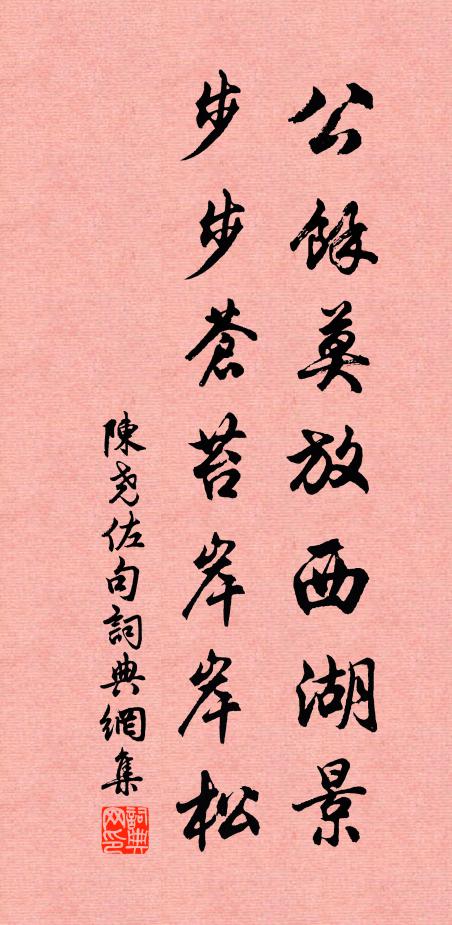 公餘莫放西湖景
步步蒼苔岸岸松
陳堯佐句詞典網集
詞典网印